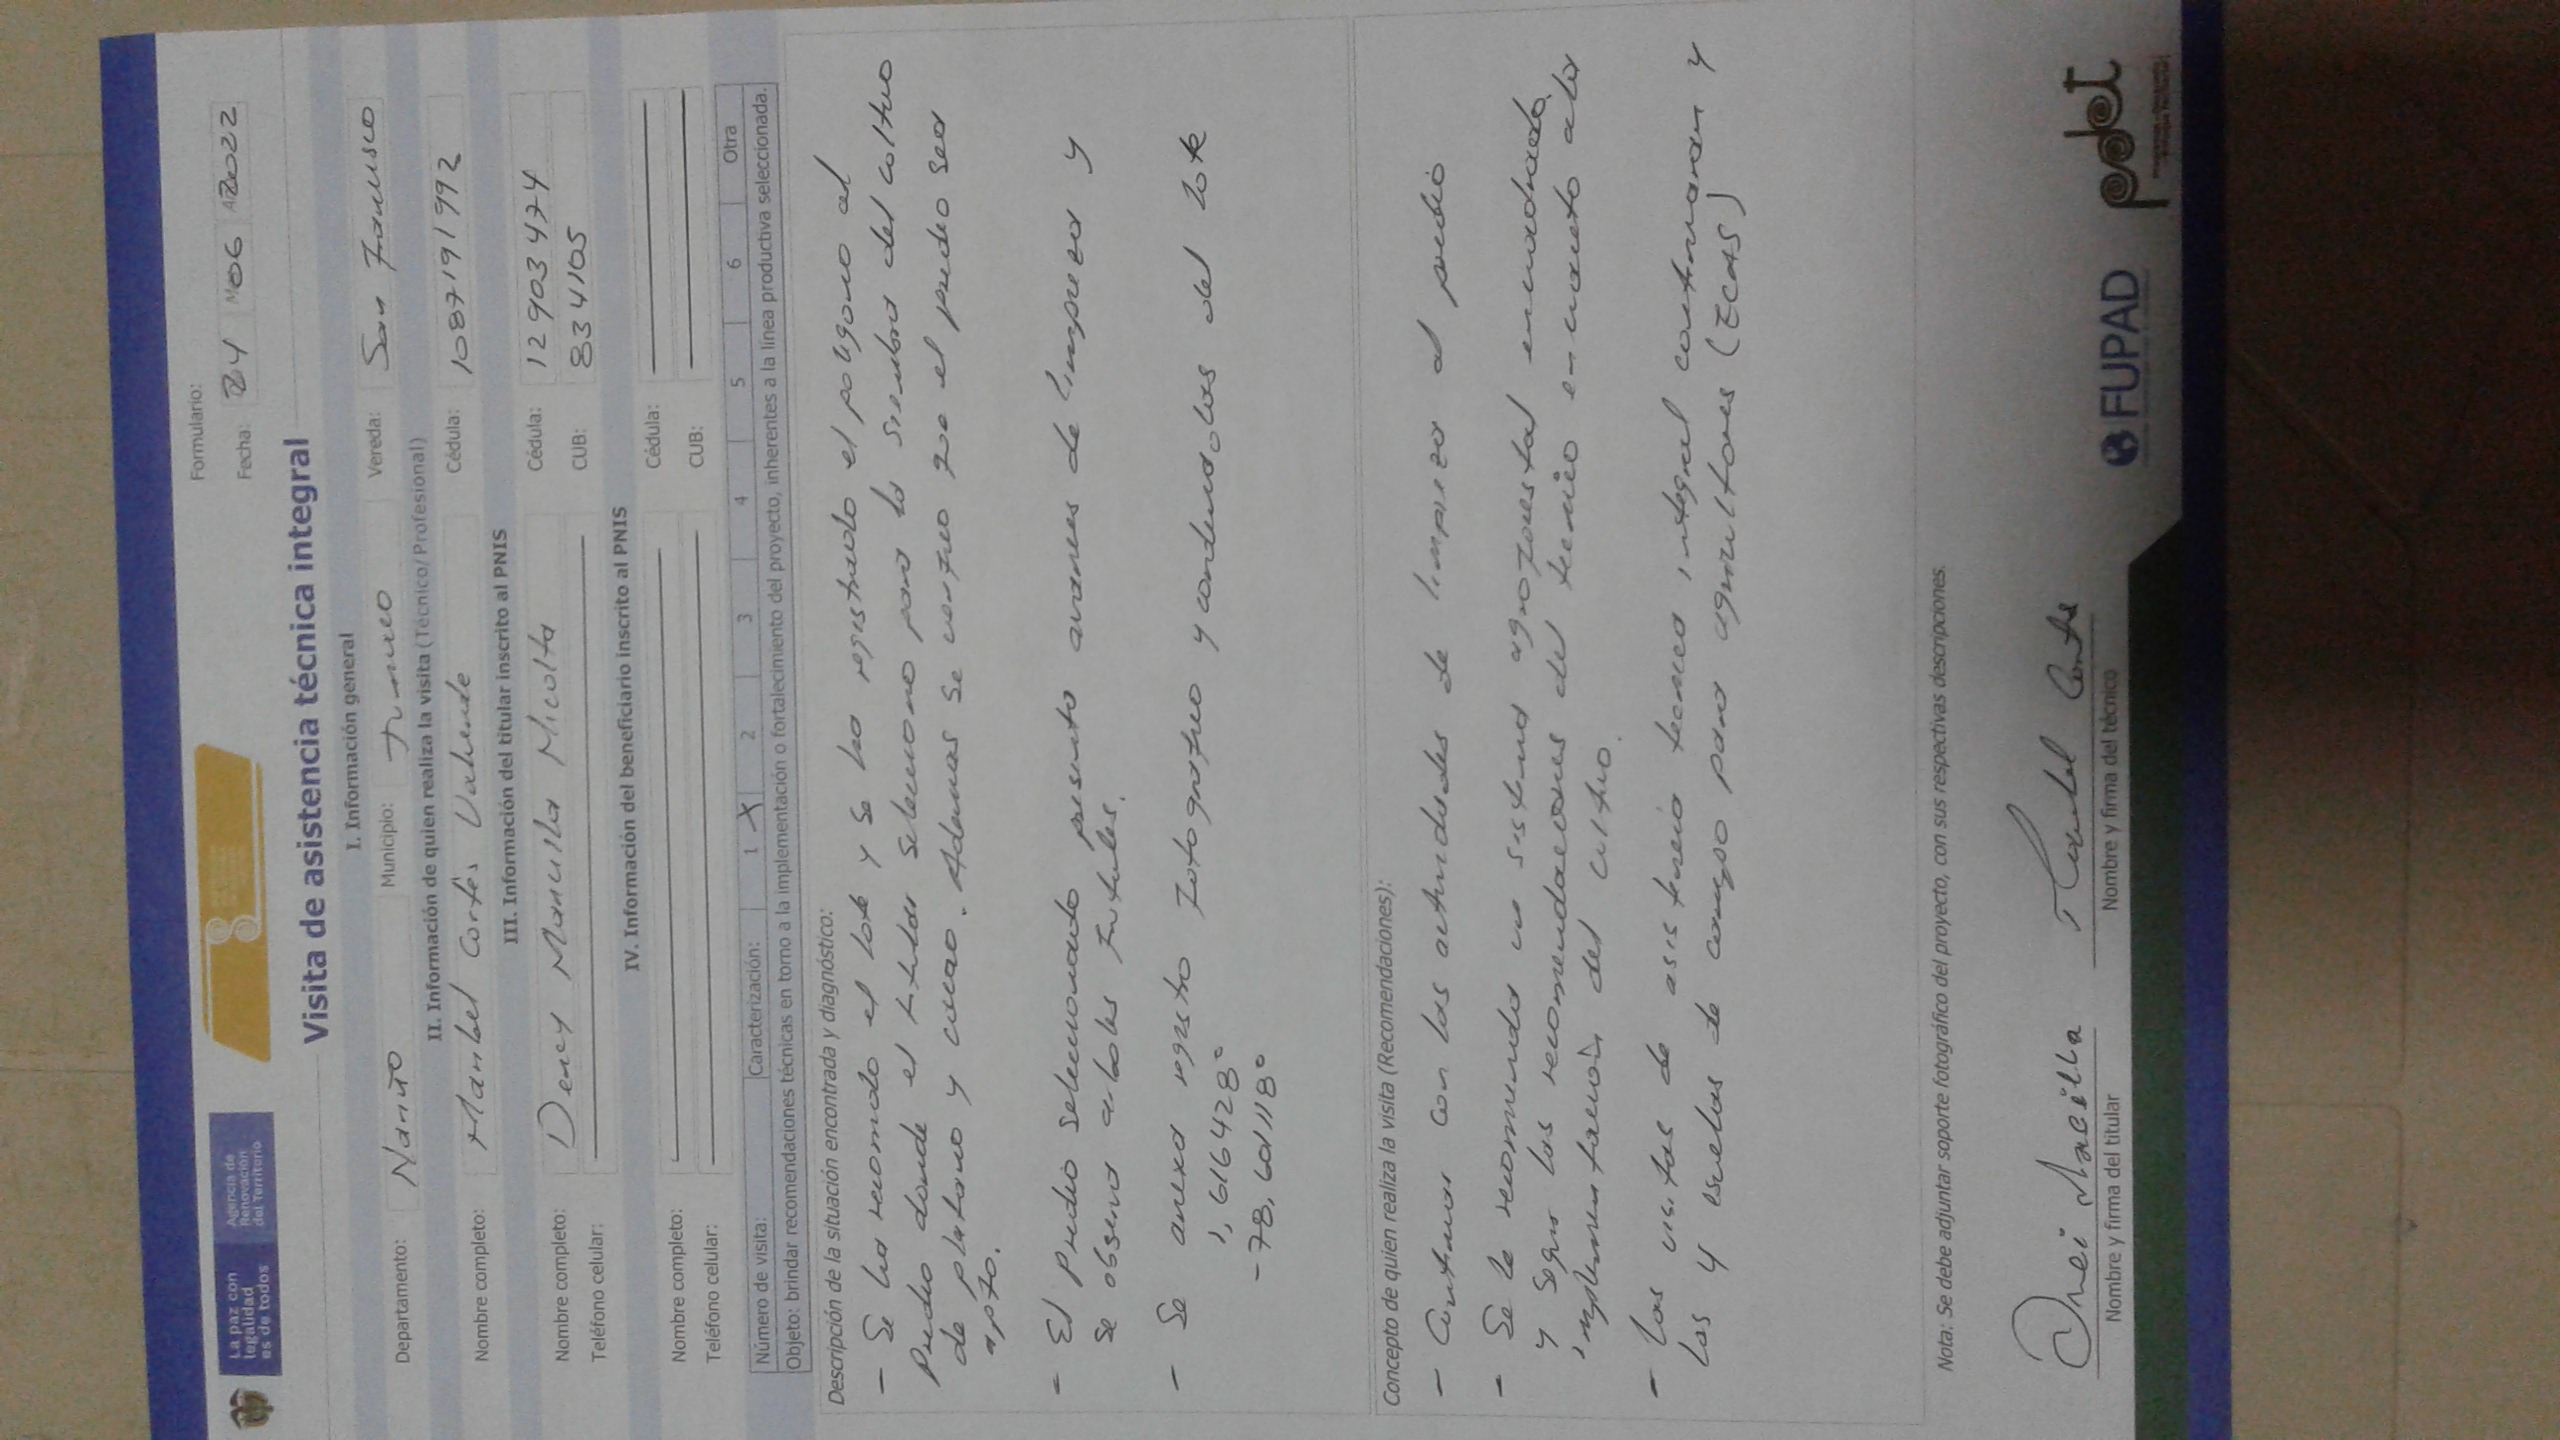 La paz con
legalidad
es de todos
Agencia de
Renovación
del Territorio
Formulario:
Fecha: D 24 M 06 A 2022
Visita de asistencia técnica integral
I. Información general
Departamento: Nariño Municipio: Tumaco Vereda: San Francisco
II. Información de quien realiza la visita (Técnico/Profesional)
Nombre completo: Maribel Cortés Valverde Cédula: 1087191992
III. Información del titular inscrito al PNIS
Nombre completo: Deney Mancilla Micolta Cédula: 12903474
Teléfono celular: CUB: 834105
IV. Información del beneficiario inscrito al PNIS
Nombre completo: Cédula:
Teléfono celular: CUB:
Número de visita: Caracterización: 1 X 2 3 4 5 6 Otra
Objeto: brindar recomendaciones técnicas en torno a la implementación o fortalecimiento del proyecto, inherentes a la línea productiva seleccionada.
Descripción de la situación encontrada y diagnóstico:
- Se ha recorrido el lote y se ha registrado el poligono al
Predio donde el titular selecciono para la siembra del cultivo
de platano y cacao. Ademas se verifico que el predio sea
apto.
- El Predio seleccionado presenta avances de limpieza y
se observa arboles frutales.
- Se anexa registro fotografico y coordenadas del lote
1,616428°
-78,601118°
Concepto de quien realiza la visita (Recomendaciones):
- Continuar con las actividades de limpieza al predio
- Se le recomienda un sistema agroforestal encuadrado,
y seguir las recomendaciones del tecnico en cuanto a la
implementación del cultivo.
- Las visitas de asistencia tecnica integral continuaran y
las y escuelas de campo para agricultores (ECAS)
Nota: Se debe adjuntar soporte fotográfico del proyecto, con sus respectivas descripciones.
Maribel Cortés
Nombre y firma del titular Nombre y firma del técnico
FUPAD
pdet